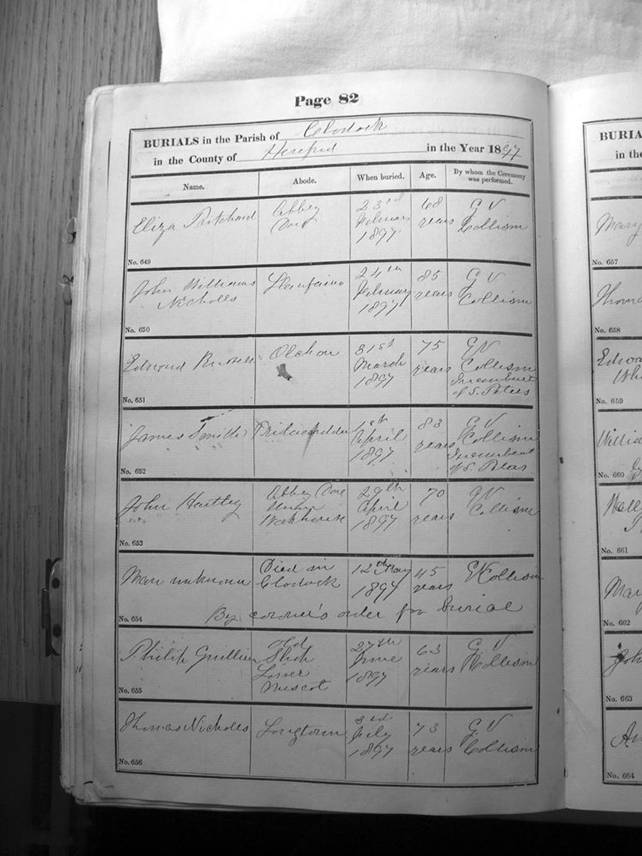 Page 82
BURIALS in the Parish of Clodock
in the County of Hereford in the Year 1897
Name. Abode. When buried. Age. By whom the Ceremony was performed.
Eliza Pritchard Abbey Dore 23rd February 1897 68 years G V Collison
No. 649
John Williams Nicholls Llanfaino 24th February 1897 85 years G V Collison
No. 650
Edward Olchon 31st March 1897 75 years GV Collison Incumbent of S. Peters
No. 651
James Smith 1st April 1897 83 years G V Collison Incumbent of S. Peters
No. 652
John Hartley Abbey Dore Union Workhouse 29th April 1897 70 years G V Collison
No. 653
Man unknown Died in Clodock 12th May 1897 45 years GV Collison
By coroner's order for Burial
No. 654
Philip Old Lower 27th June 1897 63 years G V Collison
No. 655
Thomas Nicholls Longtown 3rd July 1897 73 years G V Collison
No. 656
BURIA
in the
Mary
No. 657
Thoma
No. 658
Edwa
No. 659
Willia
No. 660
No. 661
Mary
No. 662
John
No. 663
No. 664